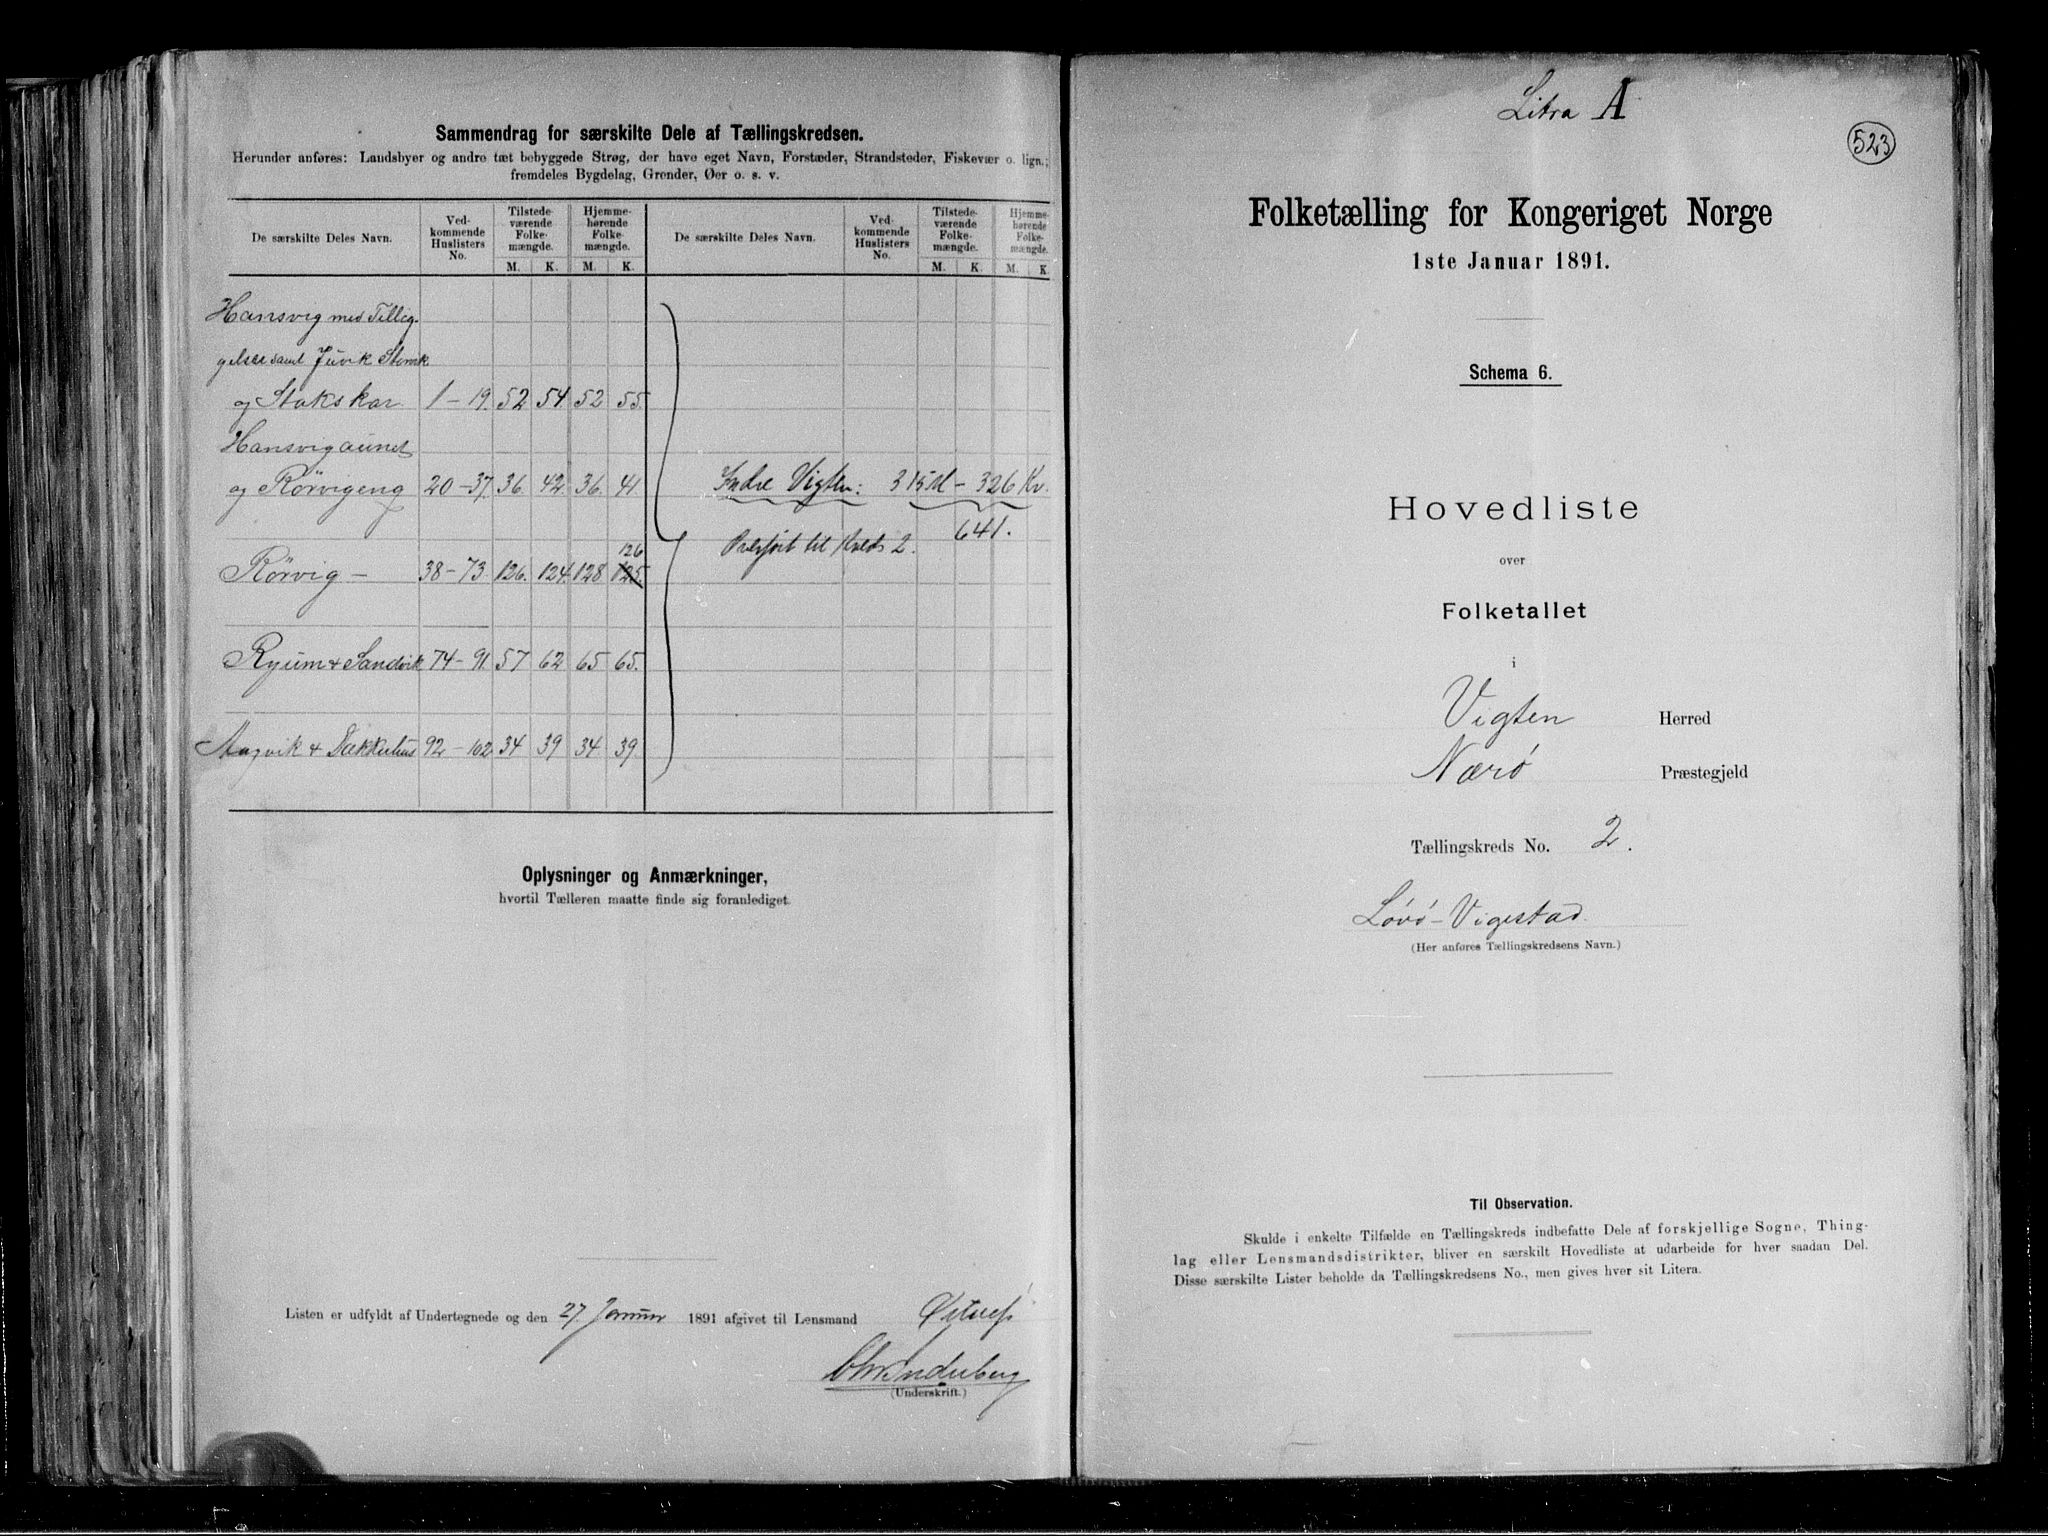 Sammendrag for særskilte Dele af Tællingskredsen.
Herunder anføres: Landsbyer og andre tæt bebyggede Strøg, der have eget Navn, Forstæder, Strandsteder, Fiskevær o. lign.;
fremdeles Bygdelag, Grender, Øer o. s. v.
De særskilte Deles Navn. Ved-kommende Huslisters No. Tilstede-værende Folke-mængde. Hjemme-hørende Folke-mængde. De særskilte Deles Navn. Ved-kommende Huslisters No. Tilstede-værende Folke-mængde. Hjemme-hørende Folke-mængde.
M. K. M. K. M. K. M. K.
Hansvig med Tillig-
gelser samt Juvik
og Stokskar 1 - 19. 52 54. 52 55.
Hansvigaunet
og Rørvigeng 20 - 37. 36. 42. 36. 41
Indre Vigten: 315 M - 326 Kv.
641.
Overført til Kreds 2.
Rørvig - 38 - 73. 126. 124. 128 125. 126
Ryum & Sandvik 74 - 91. 57 62 65 65.
Angvik & Dækkerhus 92 - 102. 34 39 34 39.
Oplysninger og Anmærkninger,
hvortil Tælleren maatte finde sig foranlediget.
Listen er udfyldt af Undertegnede og den 27. Januar 1891 afgivet til Lensmand
(Underskrift.)
Litra A
523
Folketælling for Kongeriget Norge
1ste Januar 1891.
Schema 6.
Hovedliste
over
Folketallet
i
Vigten Herred
Nærø Præstegjeld
Tællingskreds No. 2.
Løvø-Vigestad.
(Her anføres Tællingskredsens Navn.)
Til Observation.
Skulde i enkelte Tilfælde en Tællingskreds indbefatte Dele af forskjellige Sogne, Thing-
lag eller Lensmandsdistrikter, bliver en særskilt Hovedliste at udarbeide for hver saadan Del.
Disse særskilte Lister beholde da Tællingskredsens No., men gives hver sit Litera.